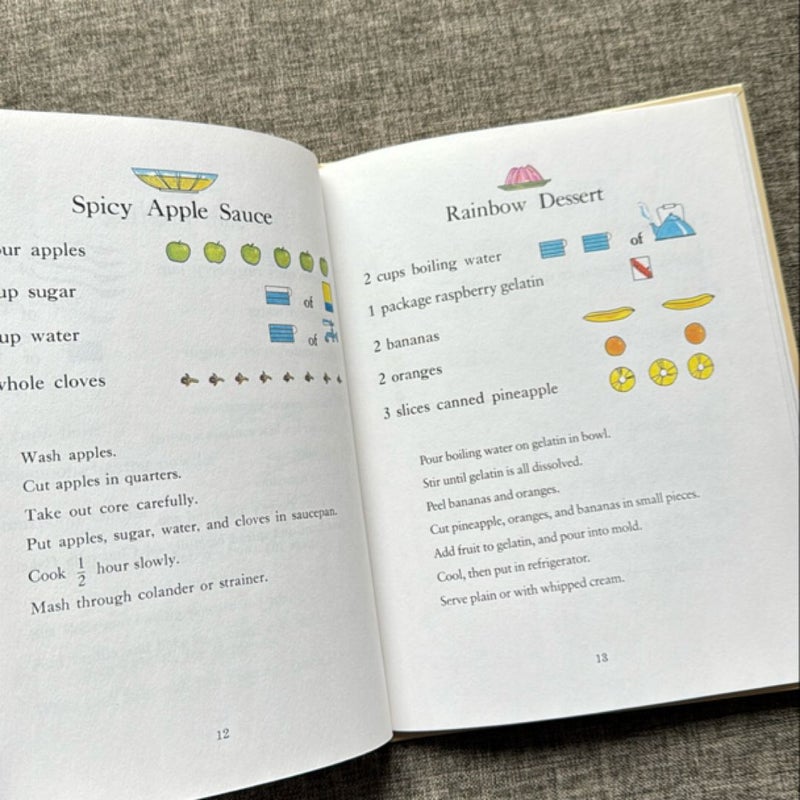 Spicy Apple Sauce
apples
of
sugar
of
water
cloves
Wash apples.
Cut apples in quarters.
Take out core carefully.
Put apples, sugar, water, and cloves in saucepan.
Cook 1/2 hour slowly.
Mash through colander or strainer.
12
Rainbow Dessert
2 cups boiling water of
1 package raspberry gelatin
2 bananas
2 oranges
3 slices canned pineapple
Pour boiling water on gelatin in bowl.
Stir until gelatin is all dissolved.
Peel bananas and oranges.
Cut pineapple, oranges, and bananas in small pieces.
Add fruit to gelatin, and pour into mold.
Cool, then put in refrigerator.
Serve plain or with whipped cream.
13